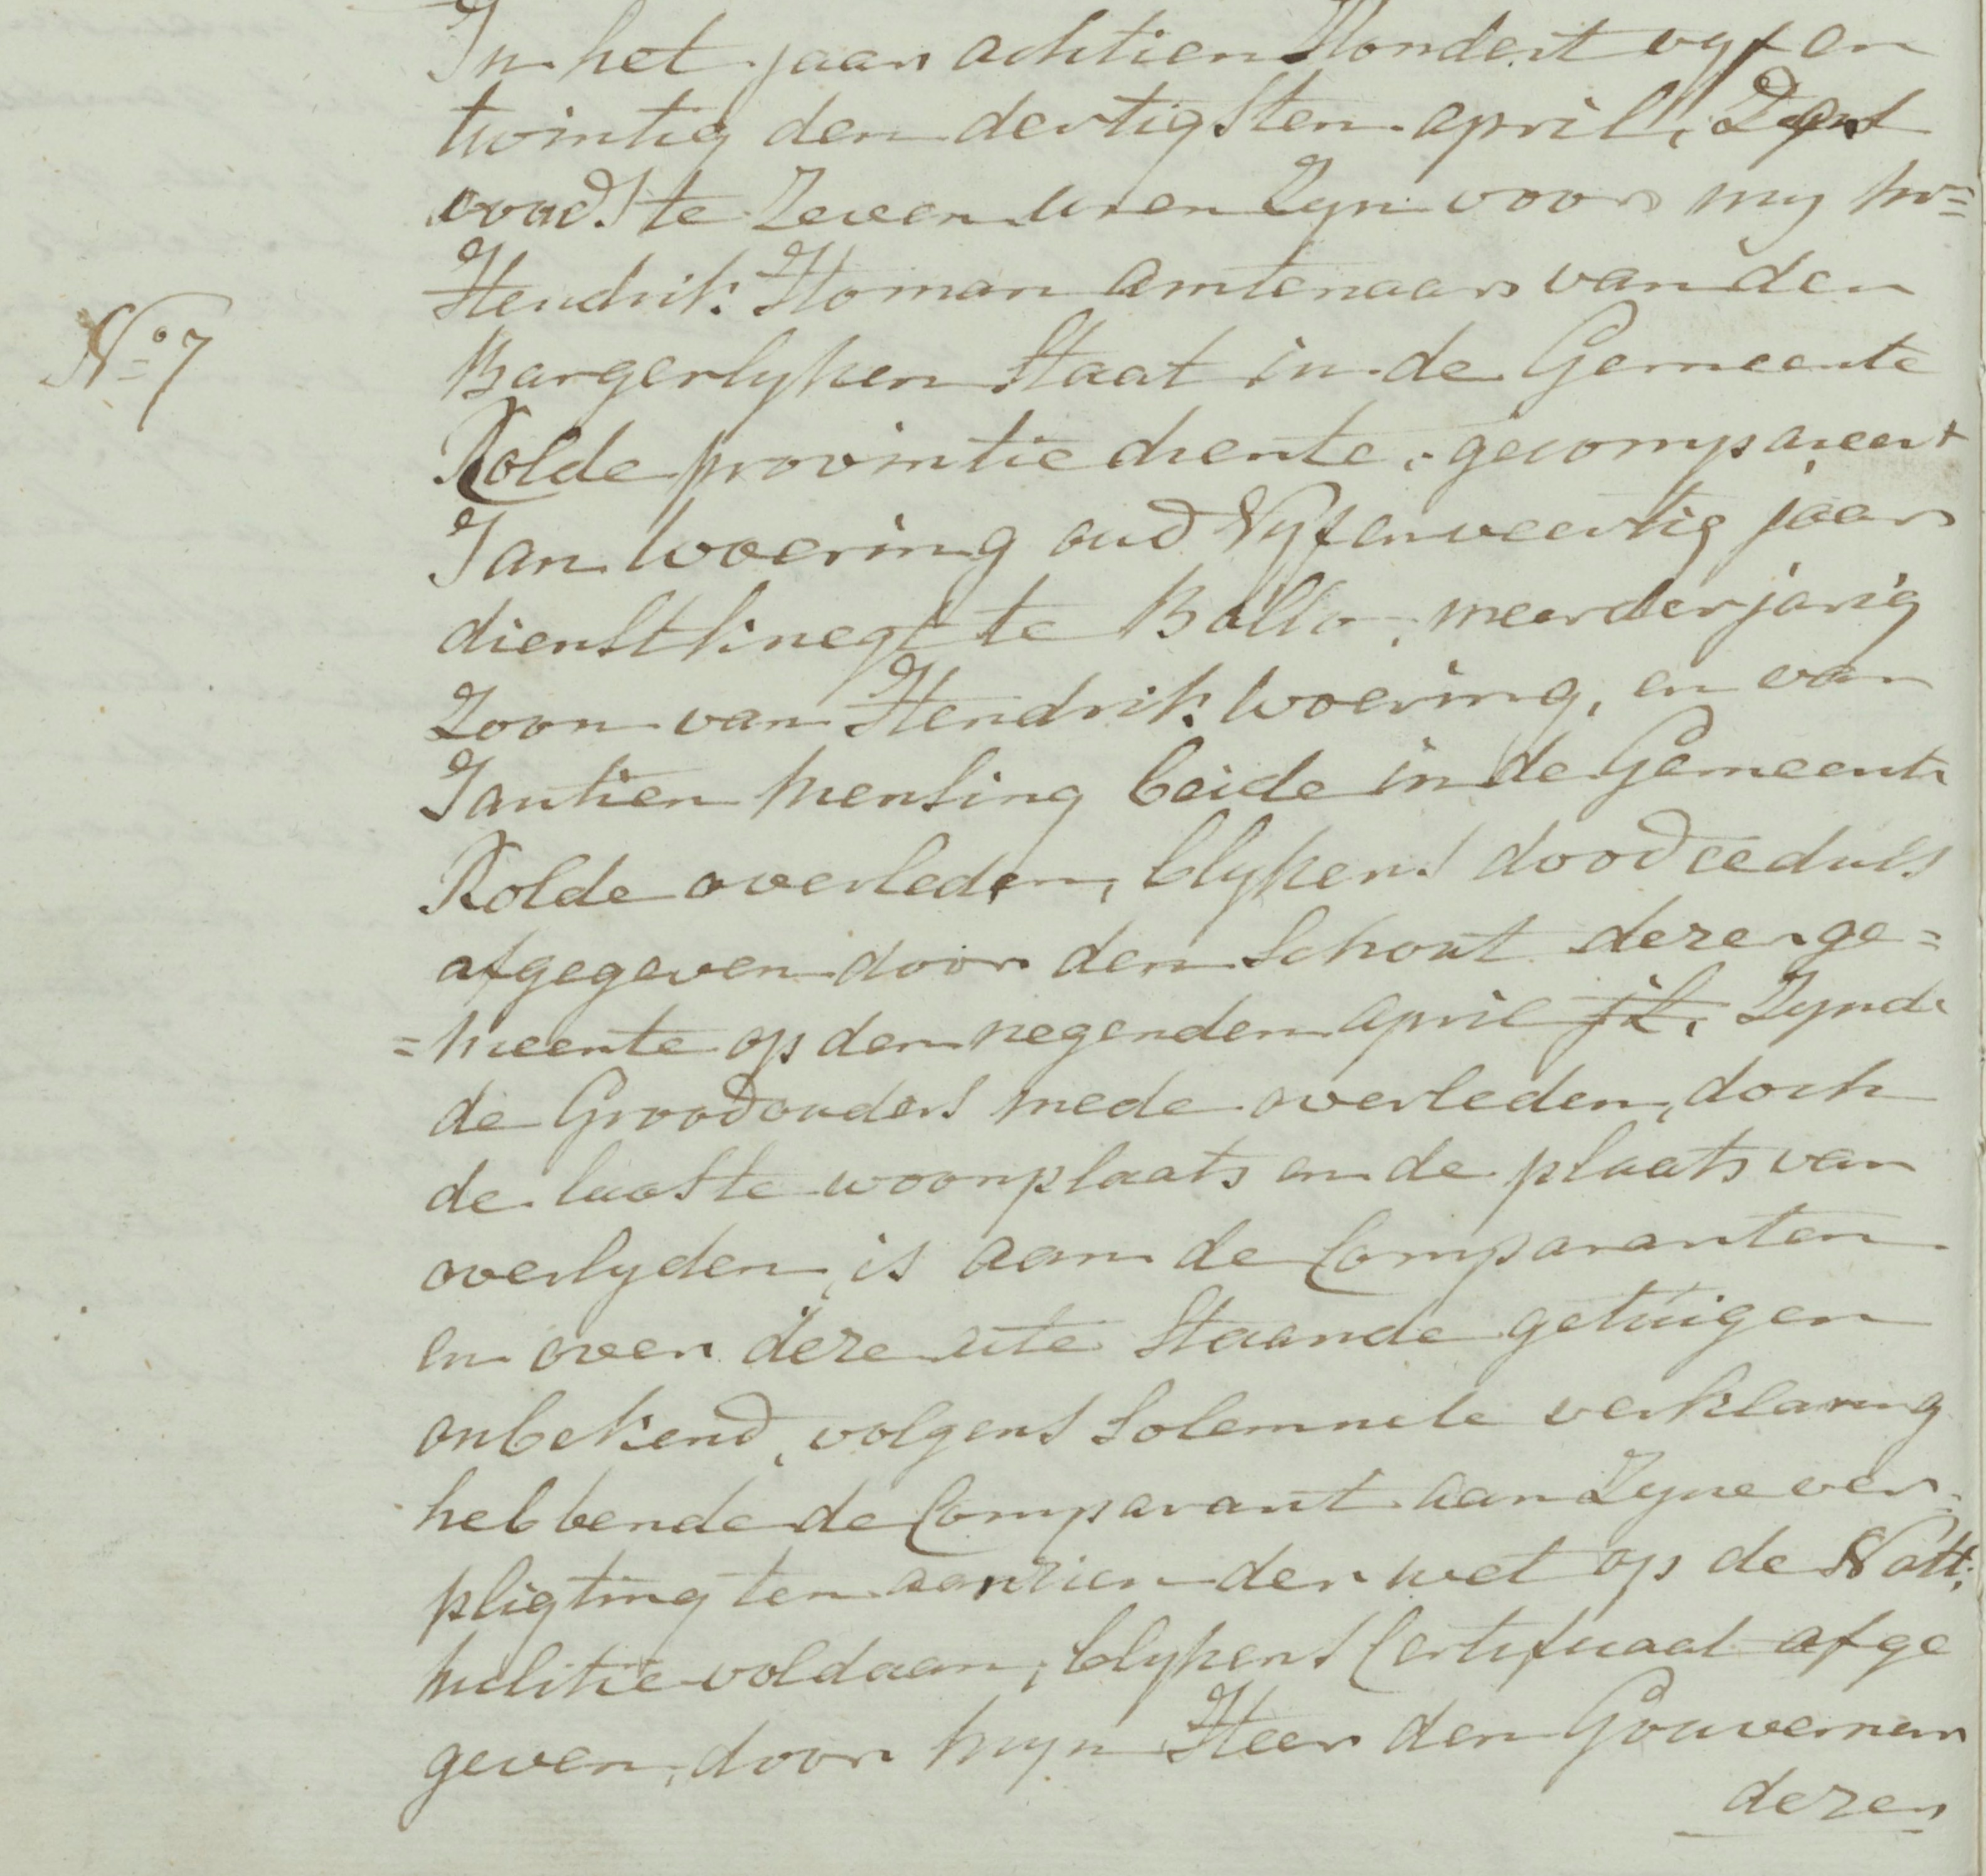 In het jaar achtien Hondert vyf en
twintig den dertigsten april, Zynt
avonds te Zeven uren Zyn voor my
Hendrik Homan amtenaar van den
Burgerlyken Staat in de Gemeente
N° 7
Rolde provintie drente, gecompareert
Jan Woering oud Vyf en veertig jaar
dienstknegt te Ballo, meerderjarig
Zoon van Hendrik Woering, en van
Jantien mensing beide in de Gemeente
Rolde overleden, blykens doodceduls
afgegeven door den Schout dezer ge=
=meente op den negenden april jl, Zynde
de Grootouders mede overleden, doch
de laatste woonplaats en de plaats van
overlyden is aan de Comparanten
en over deze acte Staande getuigen
onbekend, volgens Solemnele verklaring
hebbende de Comparant aan Zyne ver=
pligting ten aanzien der wet op de Natl:
militie voldaan, blykens Certificaat afge
geven, door myn Heer den Gouverneur
dezer